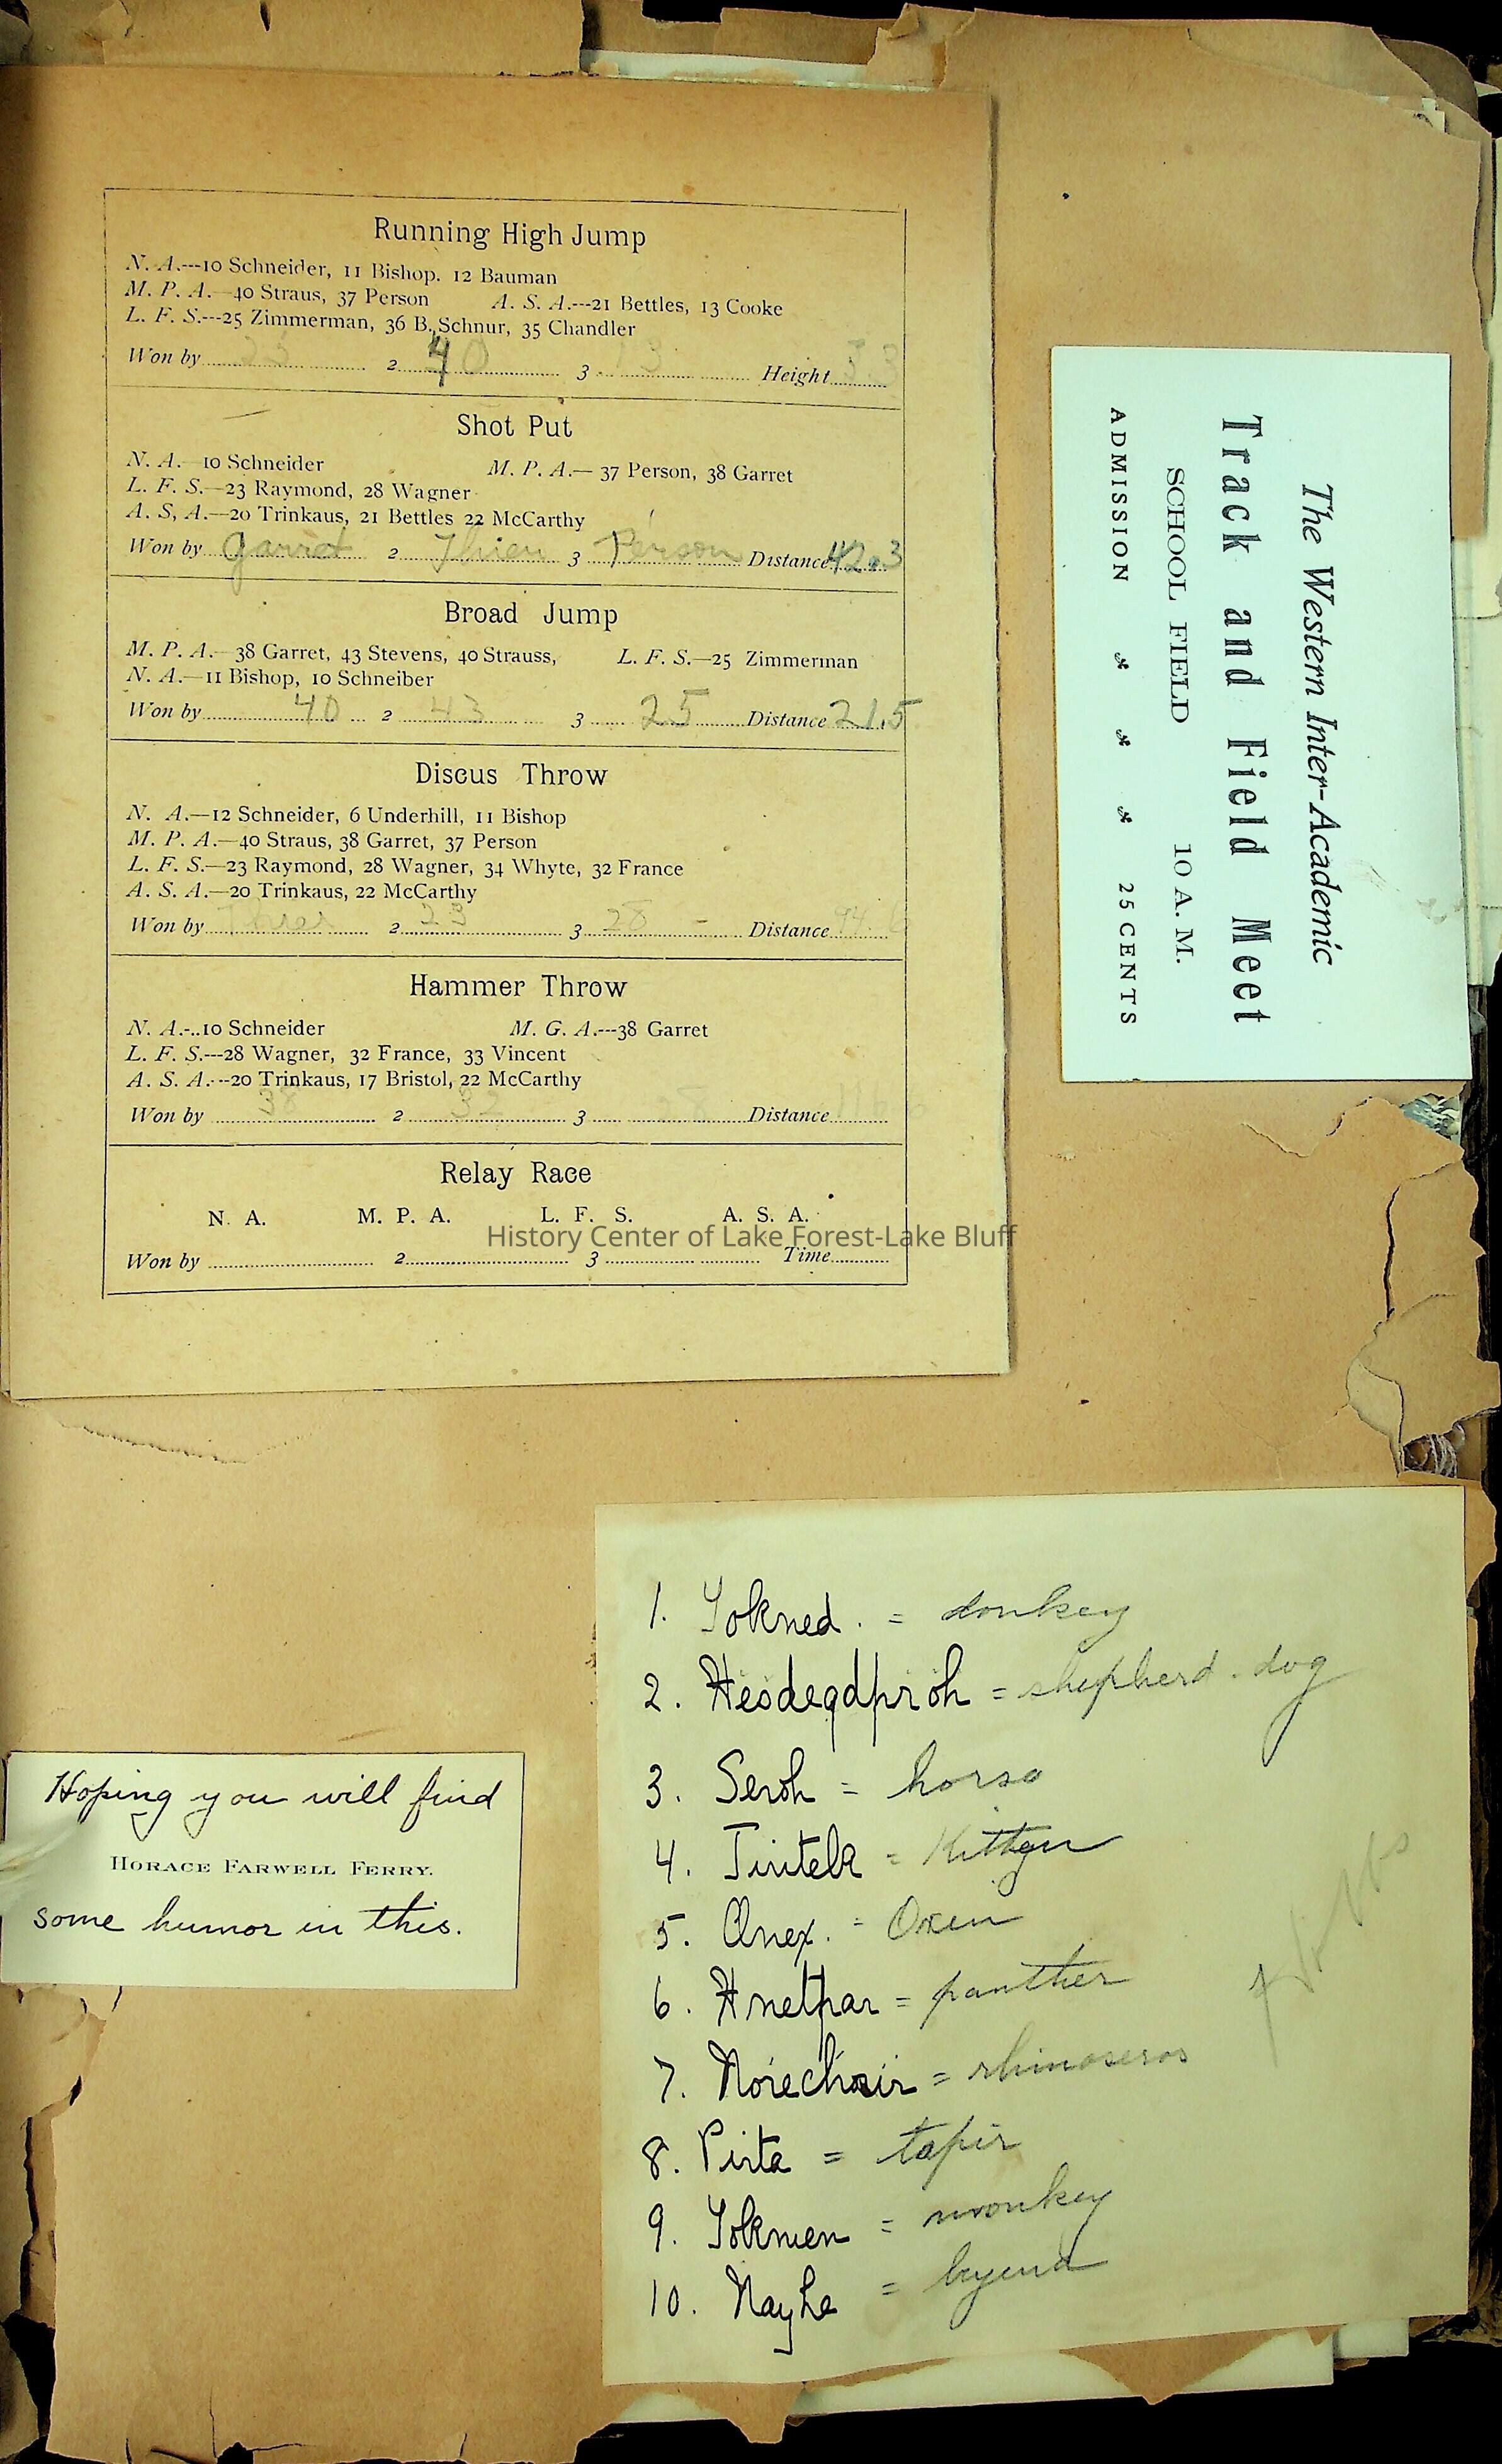 Running High Jump
N. A.---10 Schneider, 11 Bishop. 12 Bauman
M. P. A.—40 Straus, 37 Person A. S. A.---21 Bettles, 13 Cooke
L. F. S.---25 Zimmerman, 36 B. Schnur, 35 Chandler
Won by 2 40 3 Height 5.3
Shot Put
N. A.—10 Schneider M. P. A.— 37 Person, 38 Garret
L. F. S.—23 Raymond, 28 Wagner
A. S, A.—20 Trinkaus, 21 Bettles 22 McCarthy
Won by Garret 2 3 Person Distance 42.3
Broad Jump
M. P. A.—38 Garret, 43 Stevens, 40 Strauss, L. F. S.—25 Zimmerman
N. A.—11 Bishop, 10 Schneiber
Won by 40 2 43 3 25 Distance 21.5
Discus Throw
N. A.—12 Schneider, 6 Underhill, 11 Bishop
M. P. A.—40 Straus, 38 Garret, 37 Person
L. F. S.—23 Raymond, 28 Wagner, 34 Whyte, 32 France
A. S. A.—20 Trinkaus, 22 McCarthy
Won by 2 23 3 28 Distance
Hammer Throw
N. A.-..10 Schneider M. G. A.---38 Garret
L. F. S.---28 Wagner, 32 France, 33 Vincent
A. S. A.---20 Trinkaus, 17 Bristol, 22 McCarthy
Won by 38 2 32 3 Distance
Relay Race
N. A. M. P. A. L. F. S. A. S. A.
Won by 2 3 Time
History Center of Lake Forest-Lake Bluff
The Western Inter-Academic
Track and Field Meet
SCHOOL FIELD 10 A. M.
ADMISSION 25 CENTS
Hoping you will find
HORACE FARWELL FERRY.
some humor in this.
1. Yokned. = donkey
2. Hesdegdproh = shepherd. dog
3. Seroh = horse
4. Tintek = Kitten
5. Onex. = Oxen
6. Hnetpar = panther
7. = rhinoseros
8. Pirta = tapir
9. Yoknem = monkey
10. Nayhe =